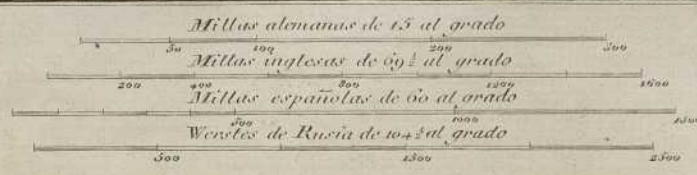 Millas alemanas de 15 al grado
50 100 200 300
Millas inglesas de 69½ al grado
200 400 800 1200 1600
Millas españolas de 60 al grado
500 1000 1500
Werstes de Rusia de 104½ al grado
500 1500 2500